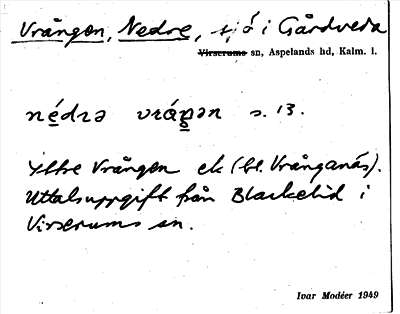 Vrången, Nedre, sjö i Gårdveda
Virserums sn, Aspelands hd, Kalm. l.
nédrə vráŋən s. 13.
Yttre Vrången ek (bl. Vrånganäs).
Uttalsuppgift från Blackelid i
Virserums sn.
Ivar Modéer 1949